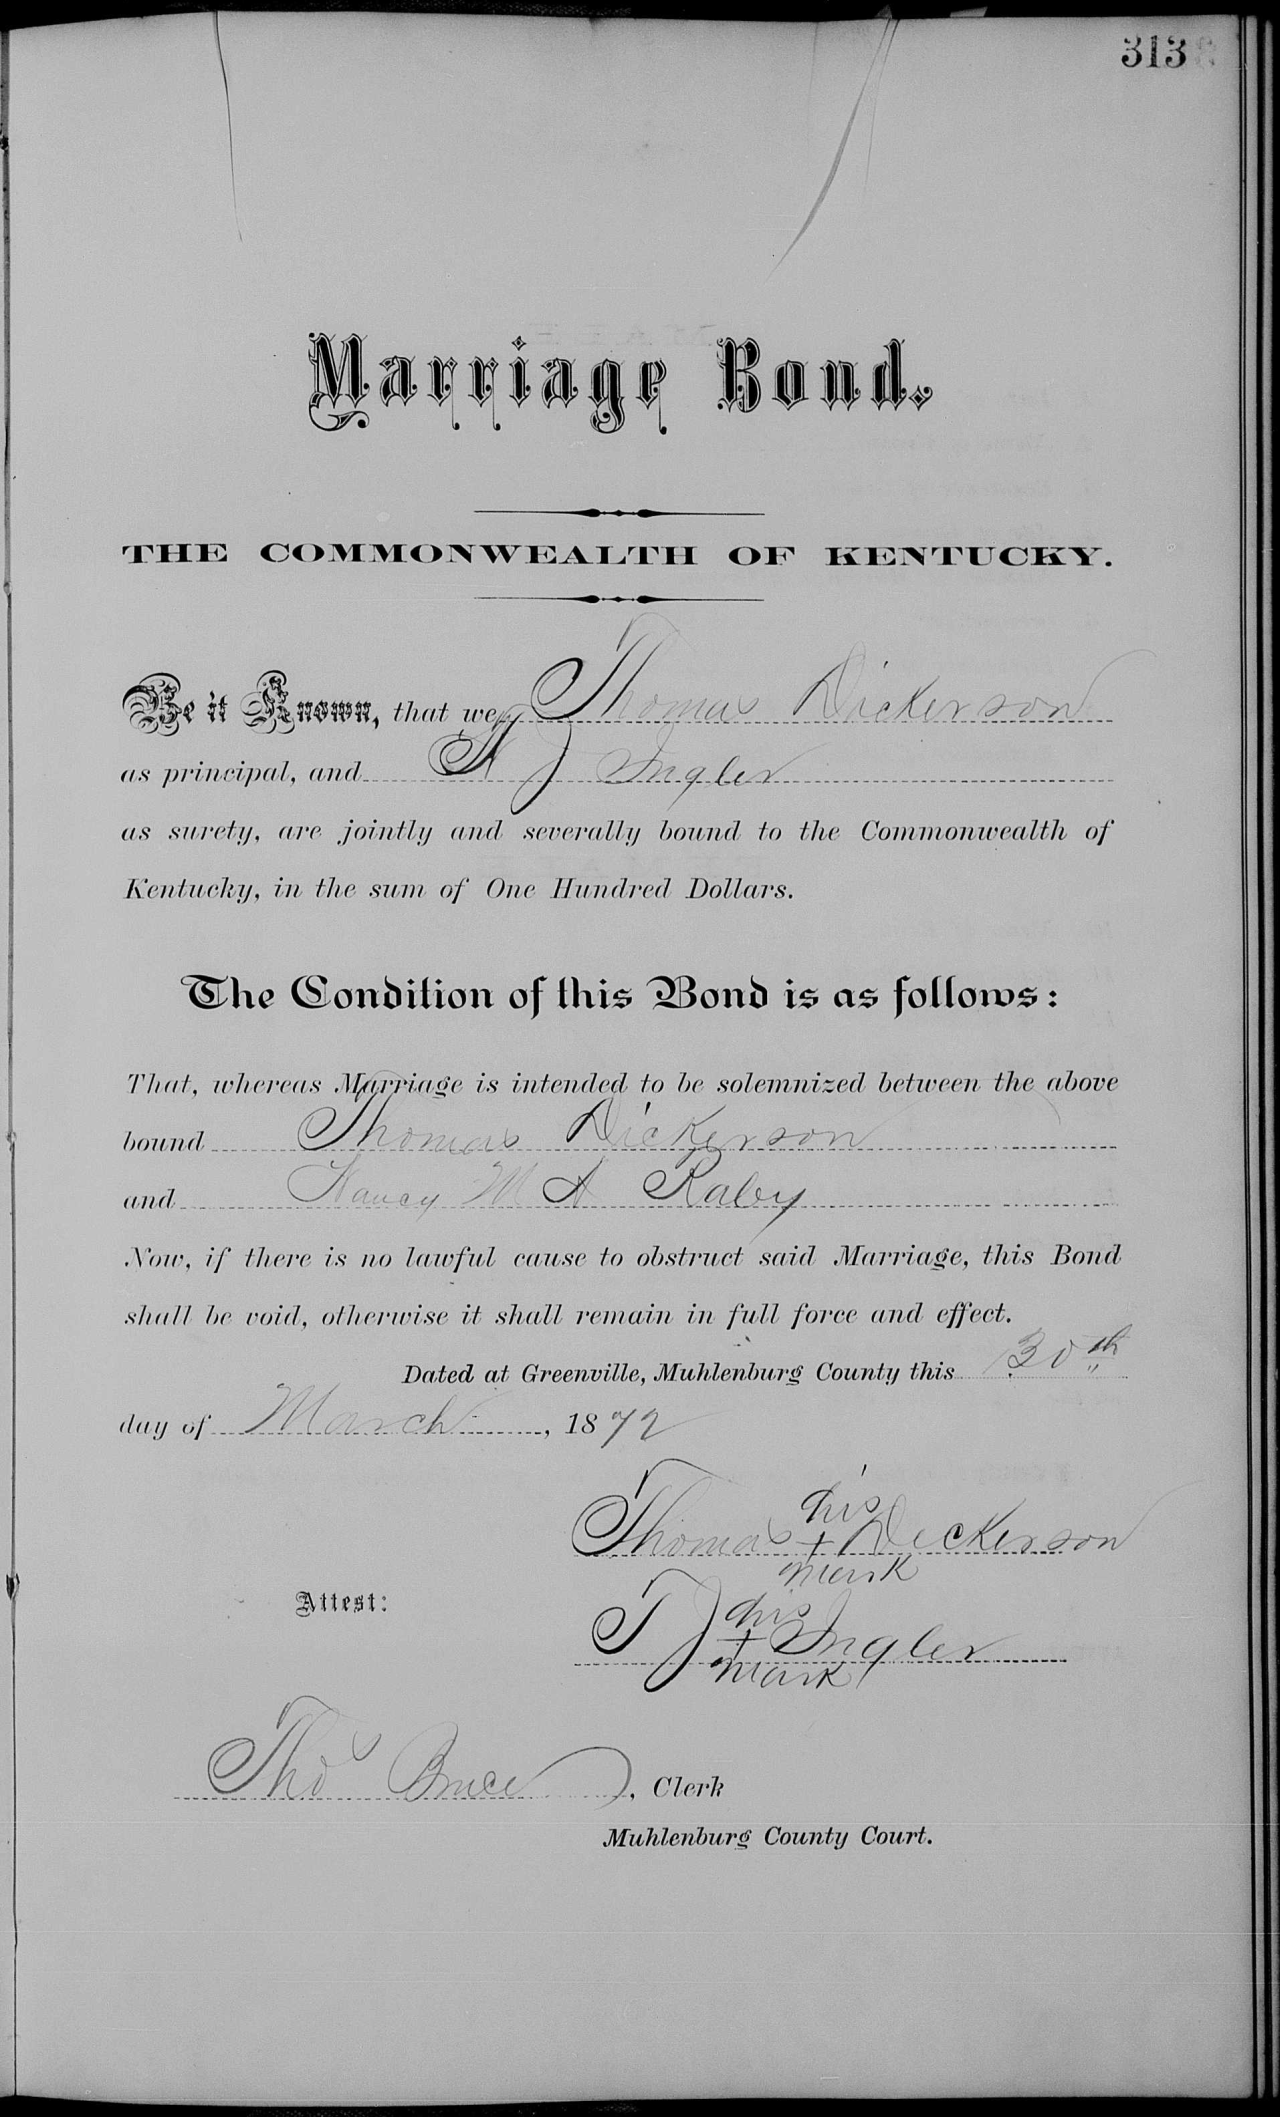 313
Marriage Bond.
THE COMMONWEALTH OF KENTUCKY.
Be it Known, that we, Thomas Dickerson
as principal, and J Ingler
as surety, are jointly and severally bound to the Commonwealth of
Kentucky, in the sum of One Hundred Dollars.
The Condition of this Bond is as follows:
That, whereas Marriage is intended to be solemnized between the above
bound Thomas Dickerson
and Nancy M A Raby
Now, if there is no lawful cause to obstruct said Marriage, this Bond
shall be void, otherwise it shall remain in full force and effect.
Dated at Greenville, Muhlenburg County this 30th
day of March, 1872
his
Thomas + Dickerson
mark
Attest:
his
T J + Ingler
mark
Thos Bruce, Clerk
Muhlenburg County Court.